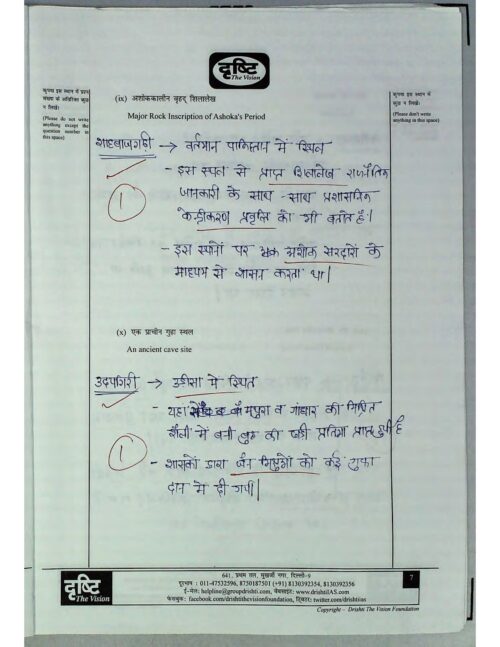 दृष्टि
The Vision
कृपया इस स्थान में प्रश्न
संख्या के अतिरिक्त कुछ
न लिखें।
(Please do not write
anything except the
question number in
this space)
कृपया इस स्थान में
कुछ न लिखें।
(Please don't write
anything in this space)
(ix) अशोककालीन वृहद् शिलालेख
Major Rock Inscription of Ashoka's Period
शाहबाजगढ़ी → वर्तमान पाकिस्तान में स्थित
- इस स्थल से प्राप्त शिलालेख राजनैतिक
जानकारी के साथ-साथ प्रशासनिक
केन्द्रीकरण प्रवृत्ति को भी बताते हैं।
1
- इस स्थानों पर अशोक सरदारों के
माध्यम से शासन करता था।
(x) एक प्राचीन गुहा स्थल
An ancient cave site
उदयगिरी → उड़ीसा में स्थित
- यहा मथुरा व गांधार की मिश्रित
शैली में बनी बुद्ध की प्रतिमा प्राप्त हुयी है
1
- शासकों द्वारा जैन भिक्षुओं को कई गुफा
दान में दी गयी।
641, प्रथम तल, मुखर्जी नगर, दिल्ली-9
दूरभाष : 011-47532596, 8750187501 (+91) 8130392354, 8130392356
ई-मेल: helpline@groupdrishti.com, वेबसाइट: www.drishtiIAS.com
फेसबुक: facebook.com/drishtithevisionfoundation, ट्विटर: twitter.com/drishtiias
7
दृष्टि
The Vision
Copyright – Drishti The Vision Foundation